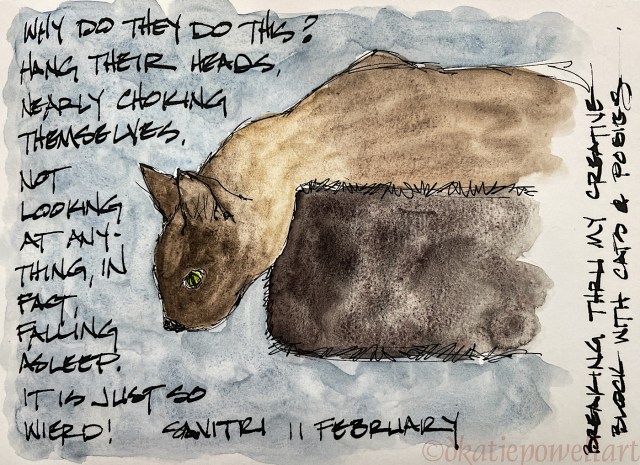 WHY DO THEY DO THIS?
HANG THEIR HEADS,
NEARLY CHOKING
THEMSELVES.
NOT
LOOKING
AT ANY-
THING, IN
FACT,
FALLING
ASLEEP.
IT IS JUST SO
WIERD! SAVITRI 11 FEBRUARY
BREAKING THRU MY CREATIVE
BLOCK WITH CATS & POBIES
©katiepowellart